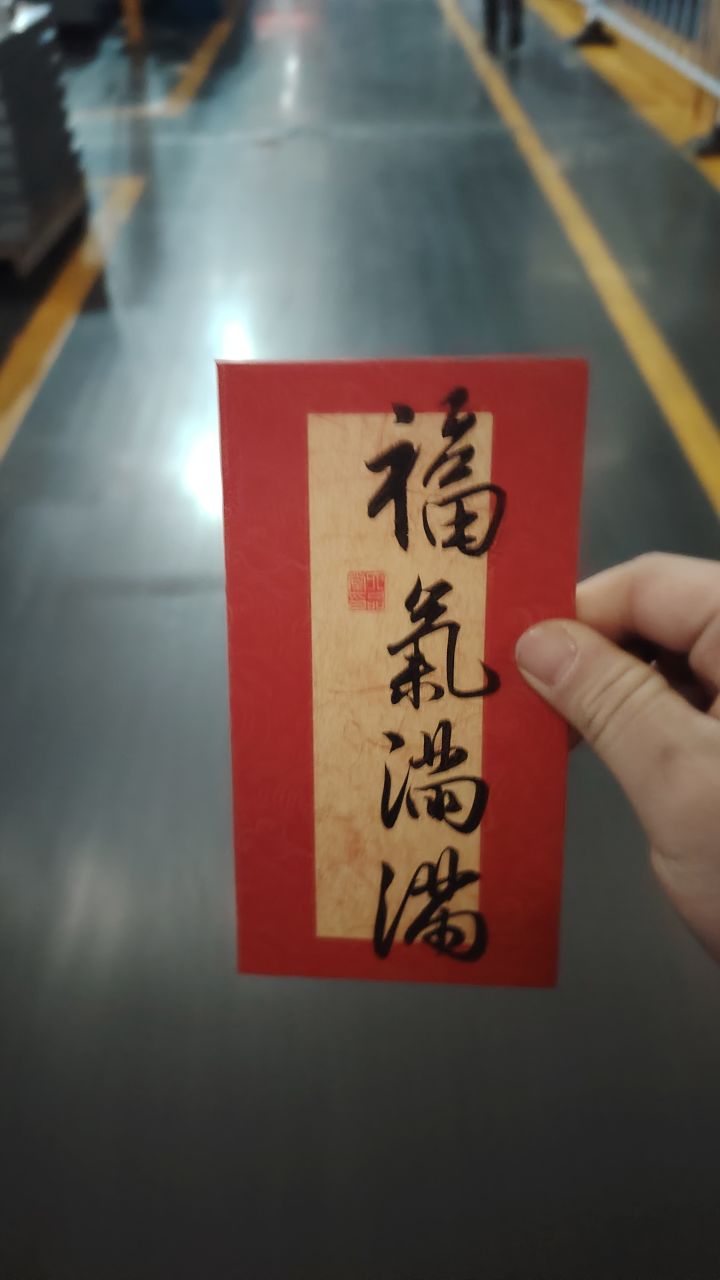 福氣滿滿